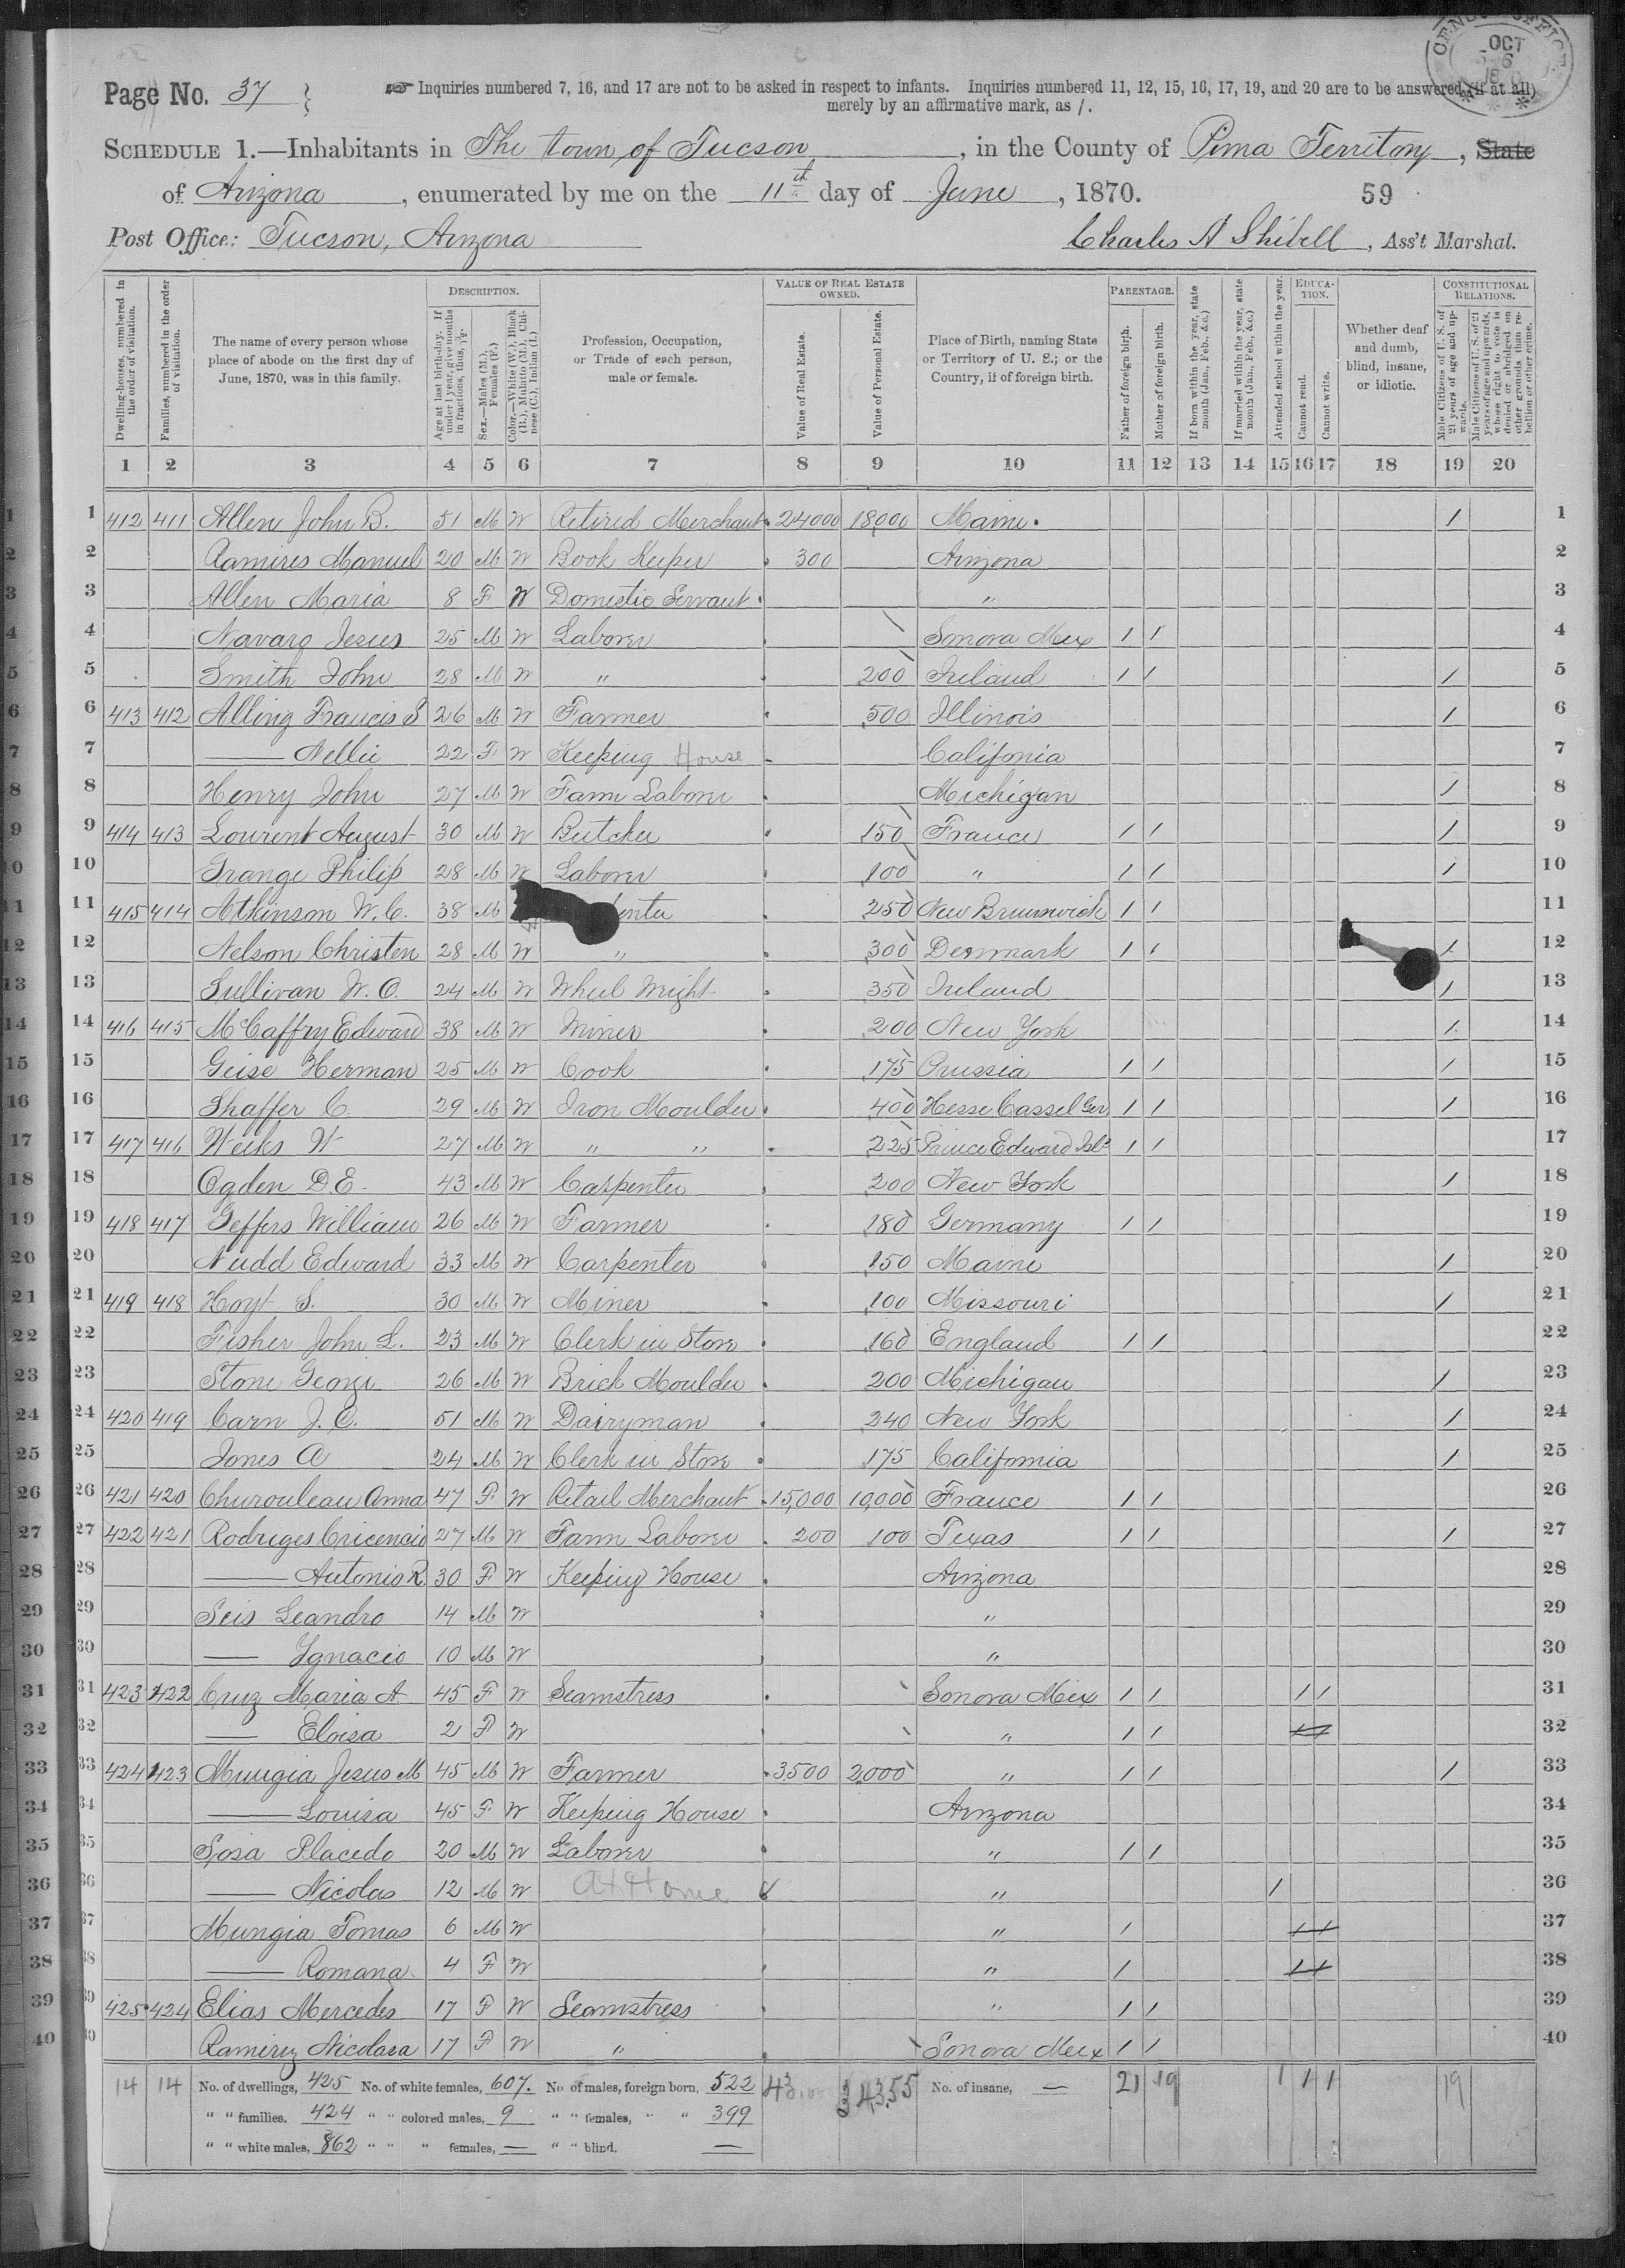 OCT
6
Page No. 37
Inquiries numbered 7, 16, and 17 are not to be asked in respect to infants. Inquiries numbered 11, 12, 15, 16, 17, 19, and 20 are to be answered (if at all)
merely by an affirmative mark, as /.
SCHEDULE 1.—Inhabitants in The town of Tucson, in the County of Pima Territory, State
of Arizona, enumerated by me on the 11th day of June, 1870. 59
Post Office: Tucson, Arizona Charles A Shibell, Ass't Marshal.
Dwelling-houses, numbered in the order of visitation.
Families, numbered in the order of visitation.
The name of every person whose place of abode on the first day of June, 1870, was in this family.
DESCRIPTION.
Age at last birth-day. If under 1 year, give months in fractions, thus, 3/12.
Sex.—Males (M.), Females (F.)
Color.—White (W.), Black (B.), Mulatto (M.), Chinese (C.), Indian (I.)
Profession, Occupation, or Trade of each person, male or female.
VALUE OF REAL ESTATE OWNED.
Value of Real Estate.
Value of Personal Estate.
Place of Birth, naming State or Territory of U. S.; or the Country, if of foreign birth.
PARENTAGE.
Father of foreign birth.
Mother of foreign birth.
If born within the year, state month (Jan., Feb., &c.)
If married within the year, state month (Jan., Feb., &c.)
Attended school within the year.
EDUCATION.
Cannot read.
Cannot write.
Whether deaf and dumb, blind, insane, or idiotic.
CONSTITUTIONAL RELATIONS.
Male Citizens of U. S. of 21 years of age and upwards.
Male Citizens of U. S. of 21 years of age and upwards, whose right to vote is denied or abridged on other grounds than rebellion or other crime.
1 2 3 4 5 6 7 8 9 10 11 12 13 14 15 16 17 18 19 20
1 412 411 Allen John B. 51 M W Retired Merchant 24000 18,000 Maine 1 1
2 Ramires Manuel 20 M W Book Keeper 300 Arizona 2
3 Allen Maria 8 F W Domestic Servant " 3
4 Navaro Jesus 25 M W Laborer Sonora Mex 1 1 4
5 Smith John 28 M W " 200 Ireland 1 1 1 5
6 413 412 Alling Francis S 26 M W Farmer 500 Illinois 1 6
7 —— Nellie 22 F W Keeping House California 7
8 Henry John 27 M W Farm Laborer Michigan 1 8
9 414 413 Lourent August 30 M W Butcher 150 France 1 1 1 9
10 Frange Philip 28 M W Laborer 100 " 1 1 1 10
11 415 414 Atkinson W. C. 38 M 250 New Brunswick 1 1 11
12 Nelson Christen 28 M W " 300 Denmark 1 1 1 12
13 Sullivan W. O. 24 M W Wheel Wright 350 Ireland 1 13
14 416 415 McCaffry Edward 38 M W Miner 200 New York 1 14
15 Geise Herman 25 M W Cook 175 Prussia 1 1 1 15
16 Shaffer C. 29 M W Iron Moulder 400 Hesse Cassel Ger 1 1 1 16
17 417 416 Weeks W 27 M W " " 225 Prince Edward Isld 1 1 17
18 Ogden D.E. 43 M W Carpenter 200 New York 1 18
19 418 417 Geffers William 26 M W Farmer 180 Germany 1 1 19
20 Nudd Edward 33 M W Carpenter 150 Maine 1 20
21 419 418 Hoyt S. 30 M W Miner 100 Missouri 1 21
22 Fisher John L. 23 M W Clerk in Store 160 England 1 1 22
23 Stone George 26 M W Brick Moulder 200 Michigan 1 23
24 420 419 Carn J. C. 51 M W Dairyman 240 New York 1 24
25 Jones A 24 M W Clerk in Store 175 California 1 25
26 421 420 Churouleau Anna 47 F W Retail Merchant 15,000 10,000 France 1 1 26
27 422 421 Rodriges Cricencio 27 M W Farm Laborer 200 100 Texas 1 1 1 27
28 —— Antonio R. 30 F W Keeping House Arizona 28
29 Seis Leandro 14 M W " 29
30 —— Ygnacio 10 M W " 30
31 423 422 Cruz Maria A. 45 F W Seamstress Sonora Mex 1 1 1 1 31
32 —— Eloisa 2 F W " 1 1 32
33 424 423 Mungia Jesus M 45 M W Farmer 3,500 2,000 " 1 1 1 33
34 —— Louisa 45 F W Keeping House Arizona 34
35 Sosa Placedo 20 M W Laborer " 1 1 35
36 —— Nicolas 12 M W At Home " 1 36
37 Mungia Tomas 6 M W " 1 1 1 37
38 —— Romana 4 F W " 1 1 1 38
39 425 424 Elias Mercedes 17 F W Seamstress " 1 1 39
40 Ramirez Nicolasa 17 F W " Sonora Mex 1 1 40
14 14 No. of dwellings, 425 No. of white females, 607. No. of males, foreign born, 522 43,000 34,355 No. of insane, — 21 19 1 1 1 19
" " families, 424 " " colored males, 9 " " females, " " 399
" " white males, 862 " " " females, — " " blind, —